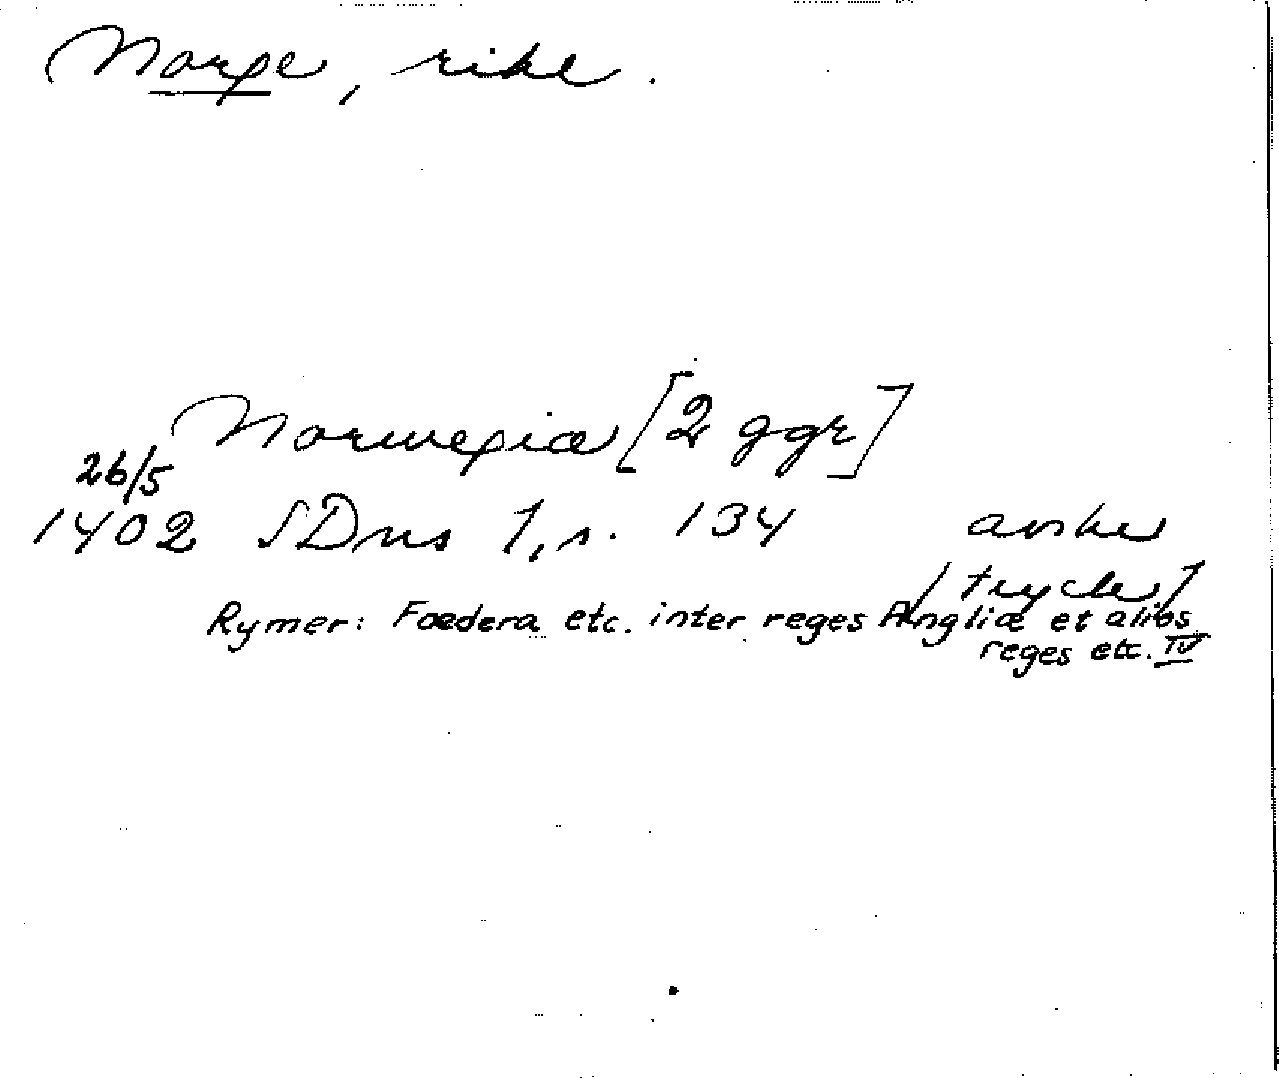 Norge, rike.
Norwegia [2 ggr]
26/5
1402 SDns 1, s. 134 avskr
[tryck]
Rymer: Foedera etc. inter reges Angliæ et alios
reges etc. IV